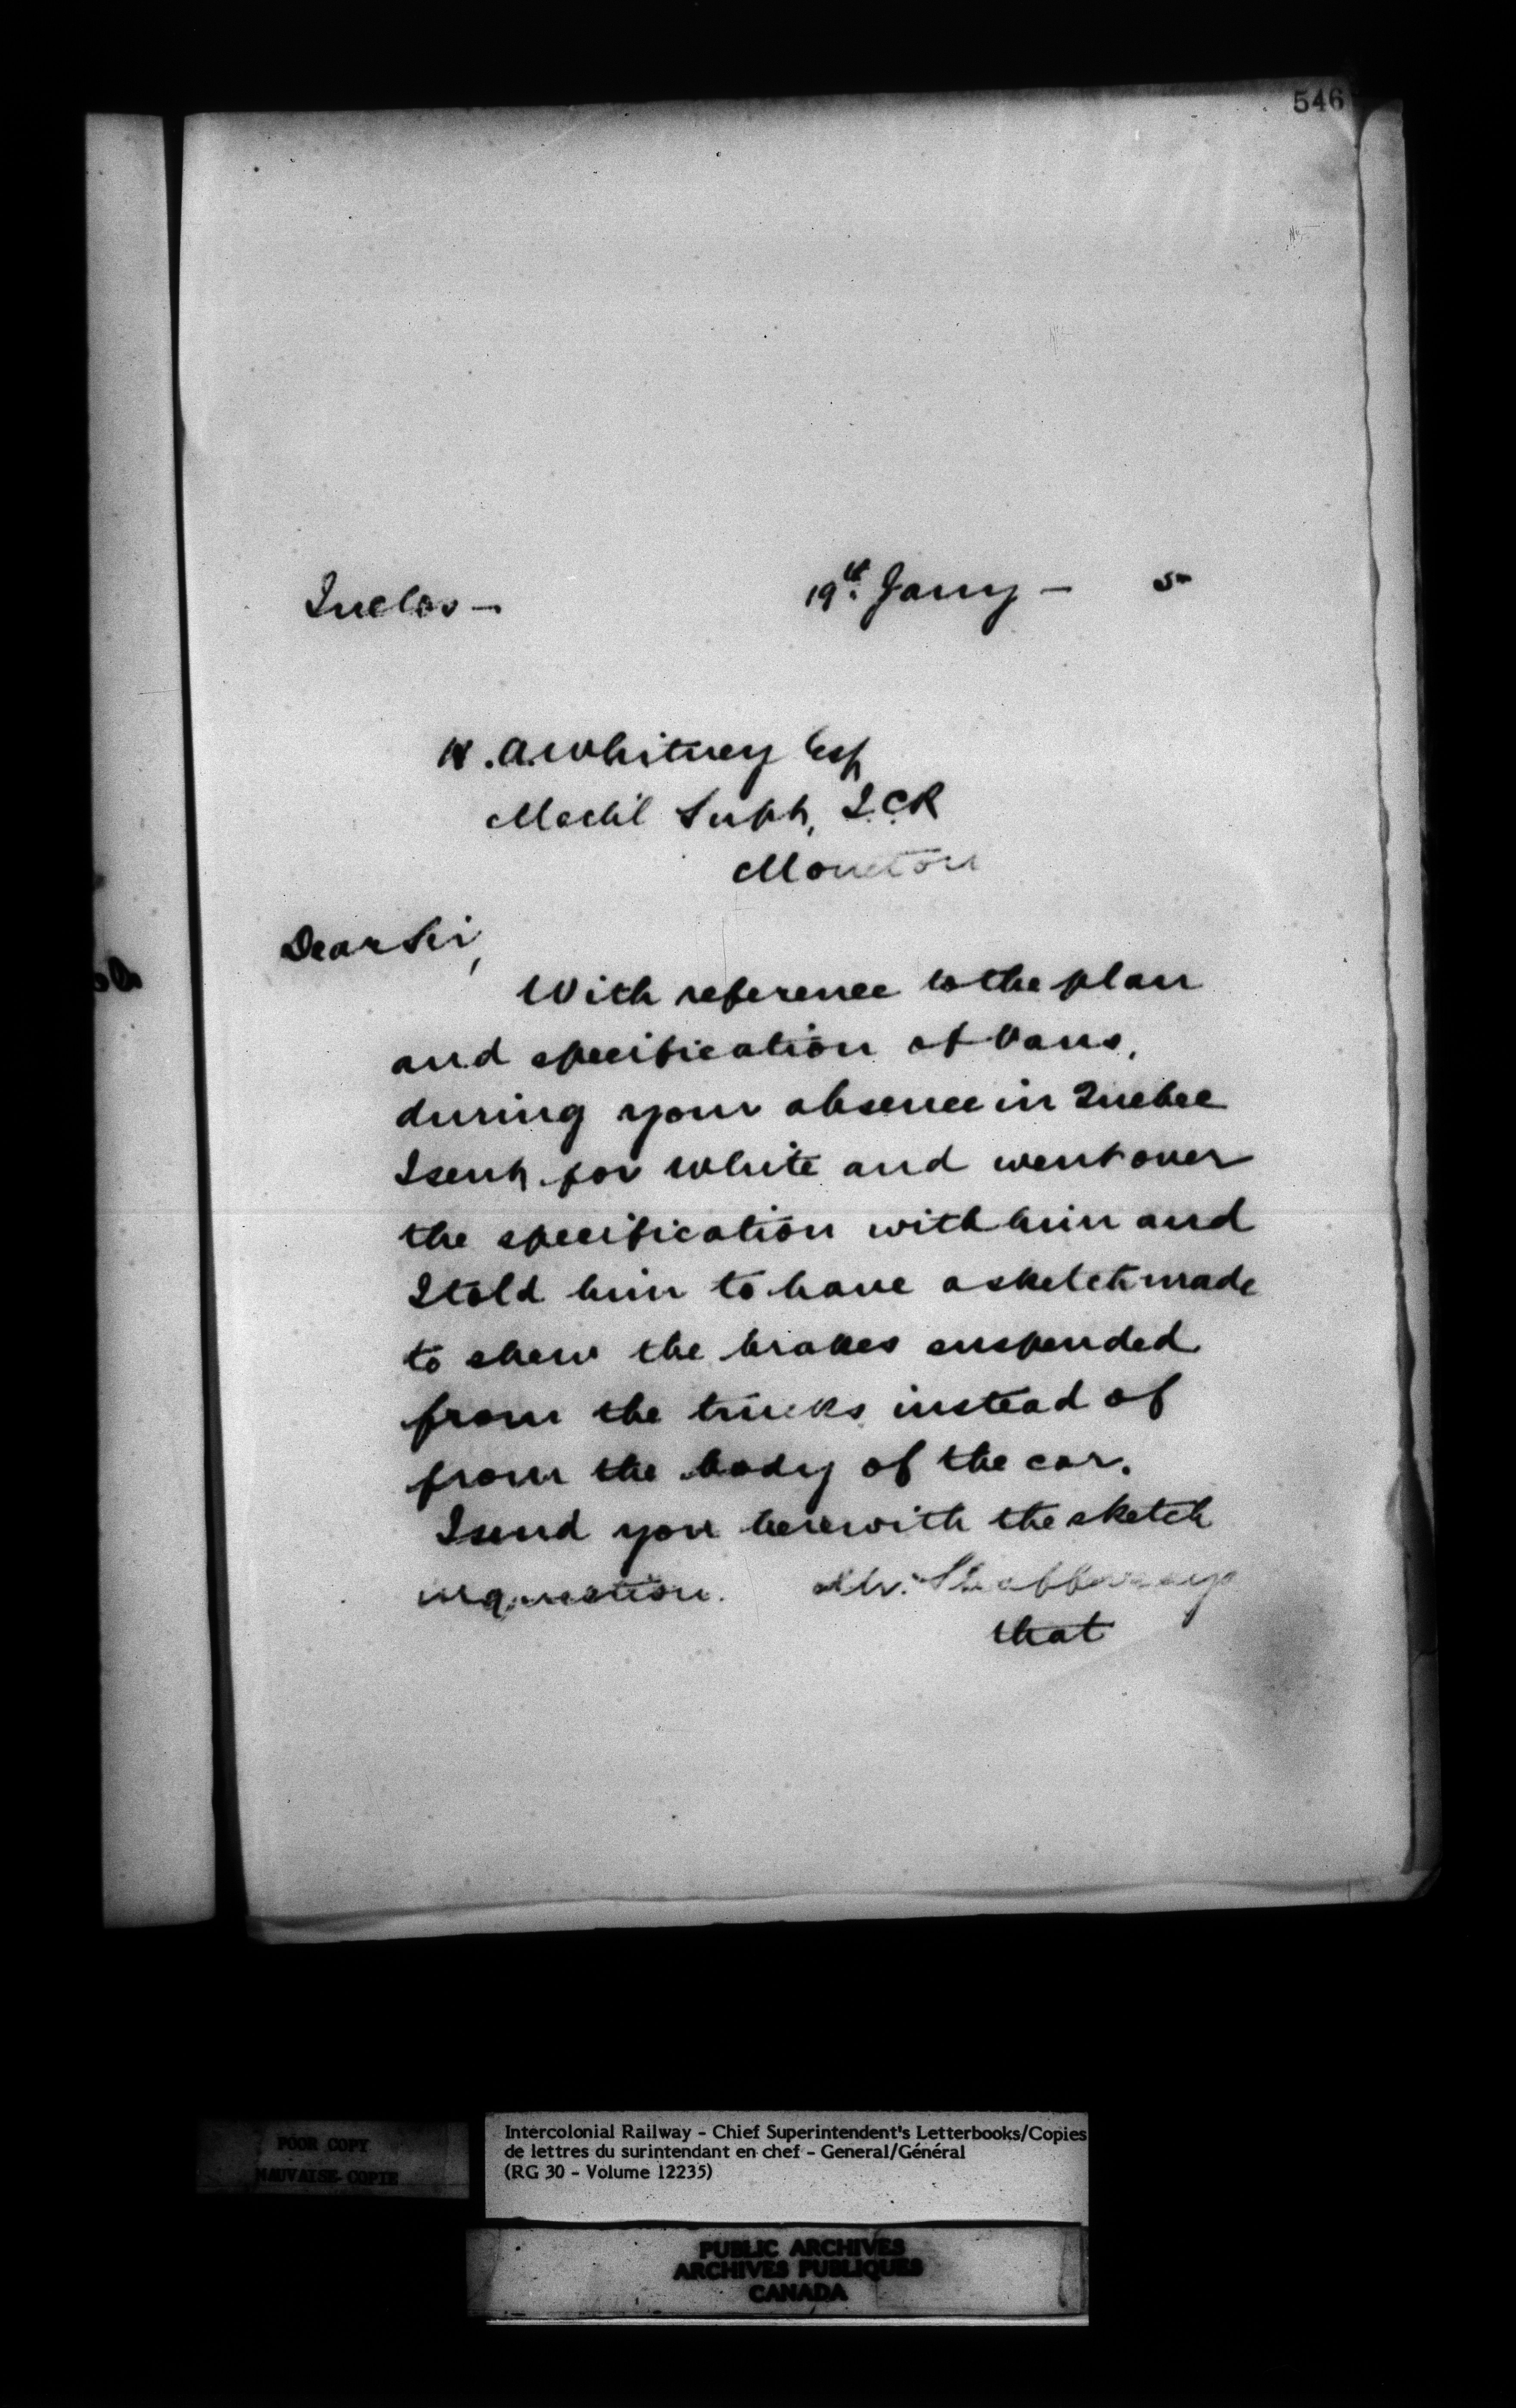 546
Inclos — 19th Jany — 5
H. A. Whitney Esq
Mechl Supt, I.C.R
Moncton
Dear Sir,
With reference to the plan
and specification of Vans,
during your absence in Quebec
I sent for White and went over
the specification with him and
I told him to have a sketch made
to shew the brakes suspended
from the trucks instead of
from the body of the car.
I send you herewith the sketch
in question. Mr.
that
POOR COPY
MAUVAISE COPIE
Intercolonial Railway - Chief Superintendent's Letterbooks/Copies
de lettres du surintendant en chef - General/Général
(RG 30 - Volume 12235)
PUBLIC ARCHIVES
ARCHIVES PUBLIQUES
CANADA